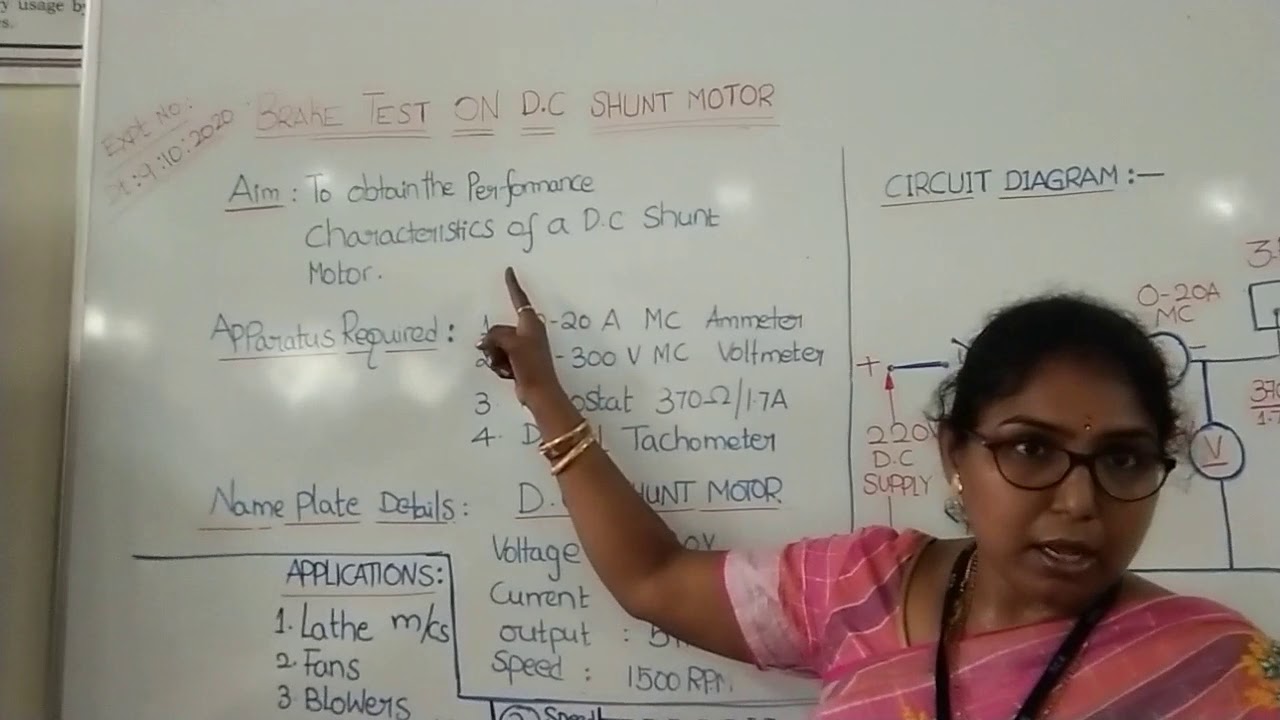 y usage b
s.
Expt No:
9:10:2020
BRAKE TEST ON D.C SHUNT MOTOR
Aim : To obtain the Performance
Characteristics of a D.C Shunt
Motor.
Apparatus Required :
-20 A MC Ammeter
-300 V MC Voltmeter
3 ostat 370Ω/1.7A
4. D Tachometer
Name Plate Details : D. HUNT MOTOR
Voltage 0V
Current
output : 5
Speed : 1500 RPM.
APPLICATIONS:
1. Lathe m/cs
2. Fans
3. Blowers
Speed
CIRCUIT DIAGRAM :-
3.
0-20A
MC
+
-
370
1.7
220V
D.C
SUPPLY
V